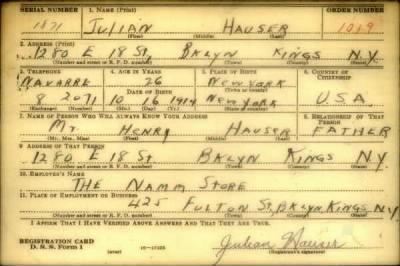 SERIAL NUMBER 1. NAME (Print) ORDER NUMBER
1871 JULIAN HAUSER 1019
(First) (Middle) (Last)
2. ADDRESS (Print)
1280 E 18 St, BKLYN KINGS N.Y.
(Number and street or R. F. D. number) (Town) (County) (State)
3. TELEPHONE 4. AGE IN YEARS 5. PLACE OF BIRTH 6. COUNTRY OF CITIZENSHIP
NAVARRE 26 NEW YORK
DATE OF BIRTH (Town or county)
8 2071 10 16 1914 NEW YORK U.S.A.
(Exchange) (Number) (Mo.) (Day) (Yr.) (State or country)
7. NAME OF PERSON WHO WILL ALWAYS KNOW YOUR ADDRESS 8. RELATIONSHIP OF THAT PERSON
Mr. HENRY HAUSER FATHER
(Mr., Mrs., Miss) (First) (Middle) (Last)
9. ADDRESS OF THAT PERSON
1280 E 18 St. BKLYN KINGS N.Y.
(Number and street or R. F. D. number) (Town) (County) (State)
10. EMPLOYER'S NAME
THE NAMM STORE
11. PLACE OF EMPLOYMENT OR BUSINESS
425 FULTON ST, BKLYN, KINGS, N.Y.
(Number and street or R. F. D. number) (Town) (County) (State)
I AFFIRM THAT I HAVE VERIFIED ABOVE ANSWERS AND THAT THEY ARE TRUE.
REGISTRATION CARD
D. S. S. Form 1 (over) Julian Hauser